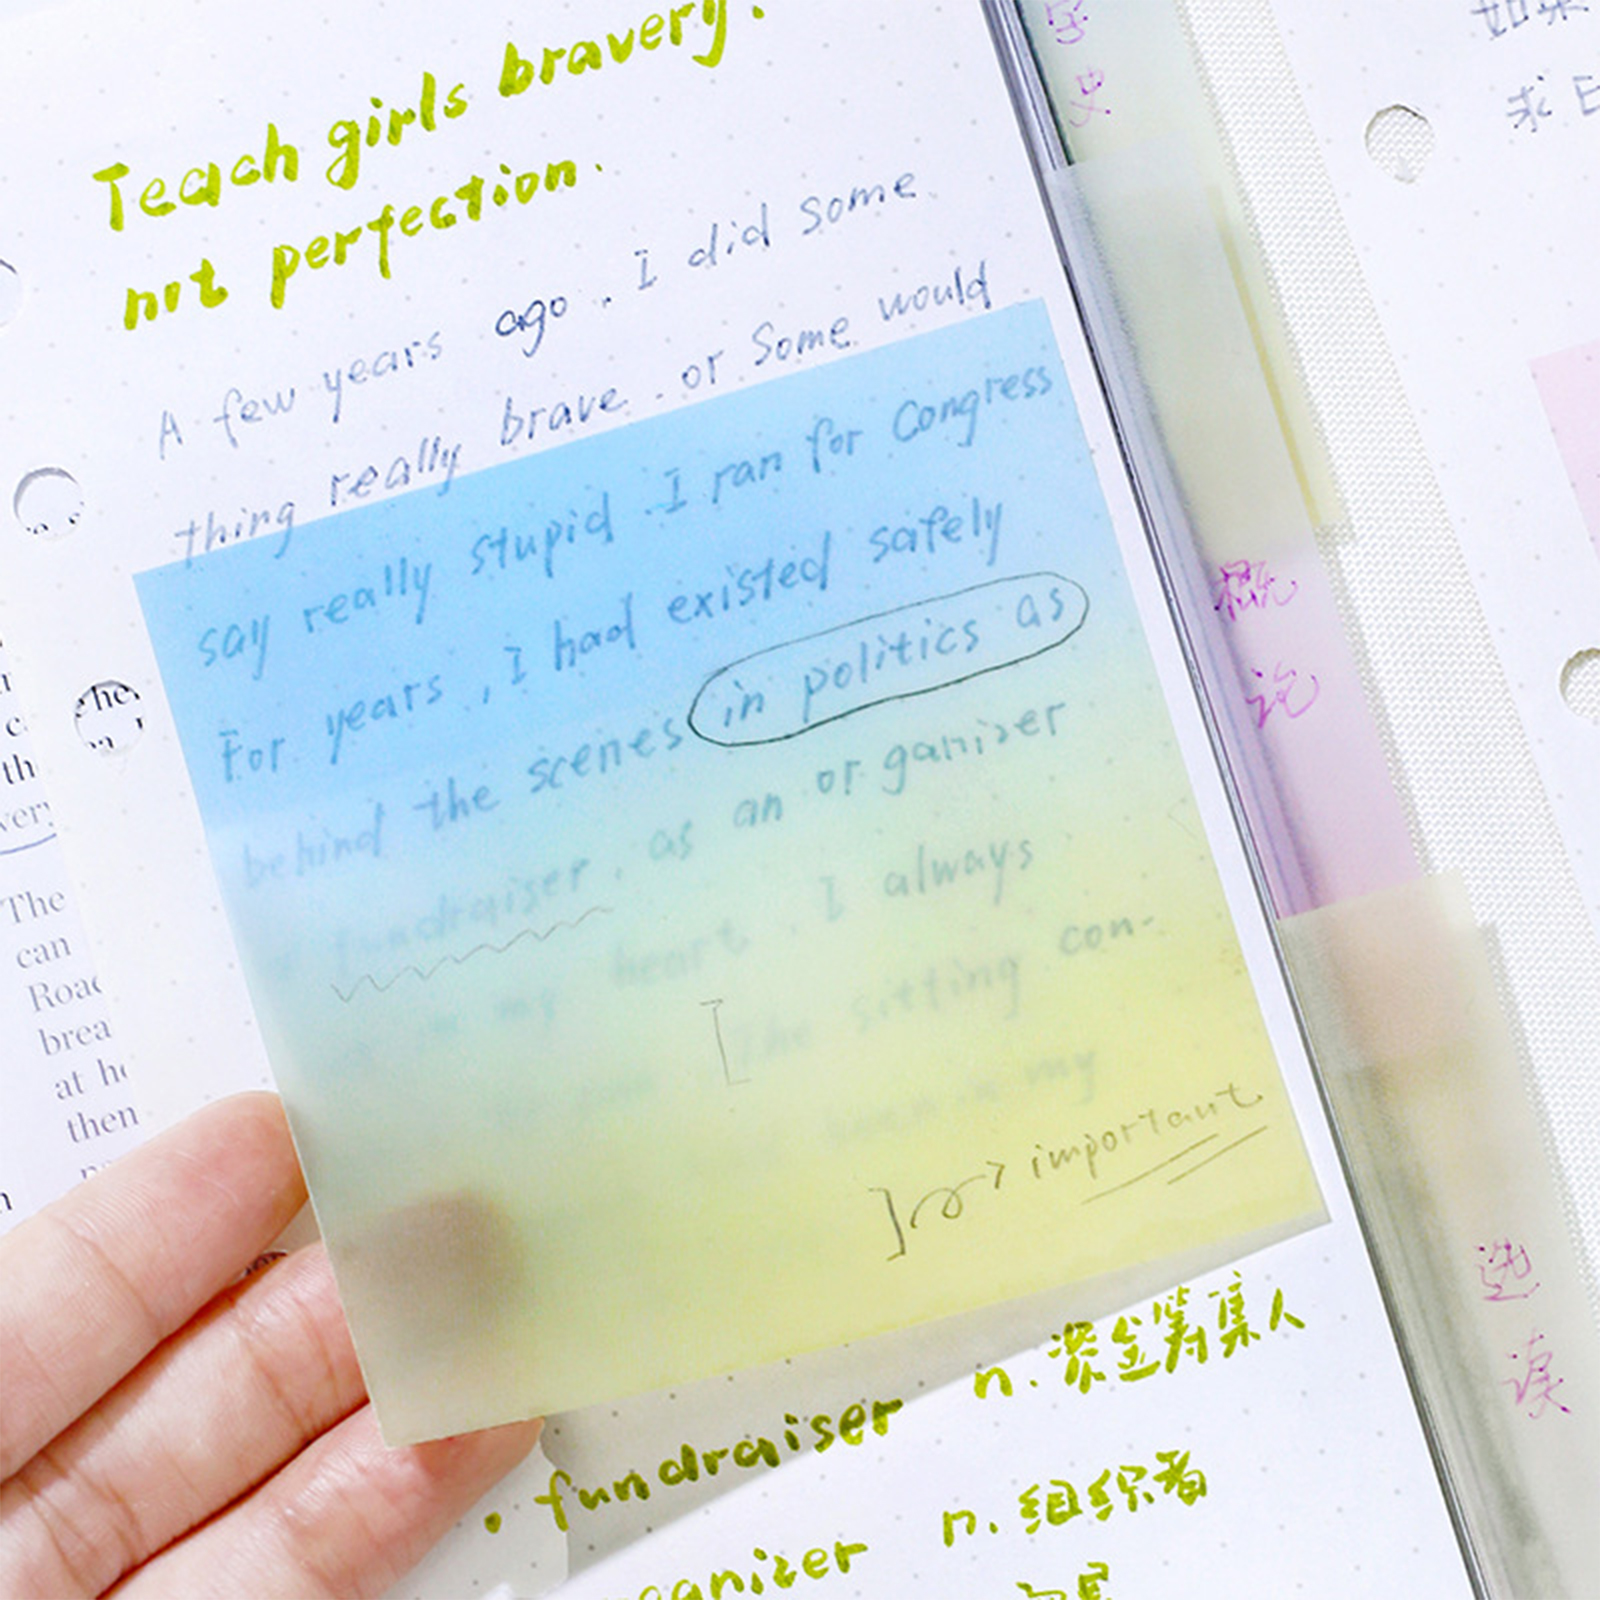 Teach girls bravery.
not perfection.
A few years ago. I did some
thing really brave. or Some would
say really stupid. I ran for Congress
For years, I had existed safely
behind the scenes in politics as
fundraiser. as an organizer
in my heart. I always
The sitting con-
in my
] → important
• fundraiser n. 资金筹集人
ganizer n. 组织者
学
史
概
论
选
读
如果
求
her
th
very
The
can
Road
brea
at he
then